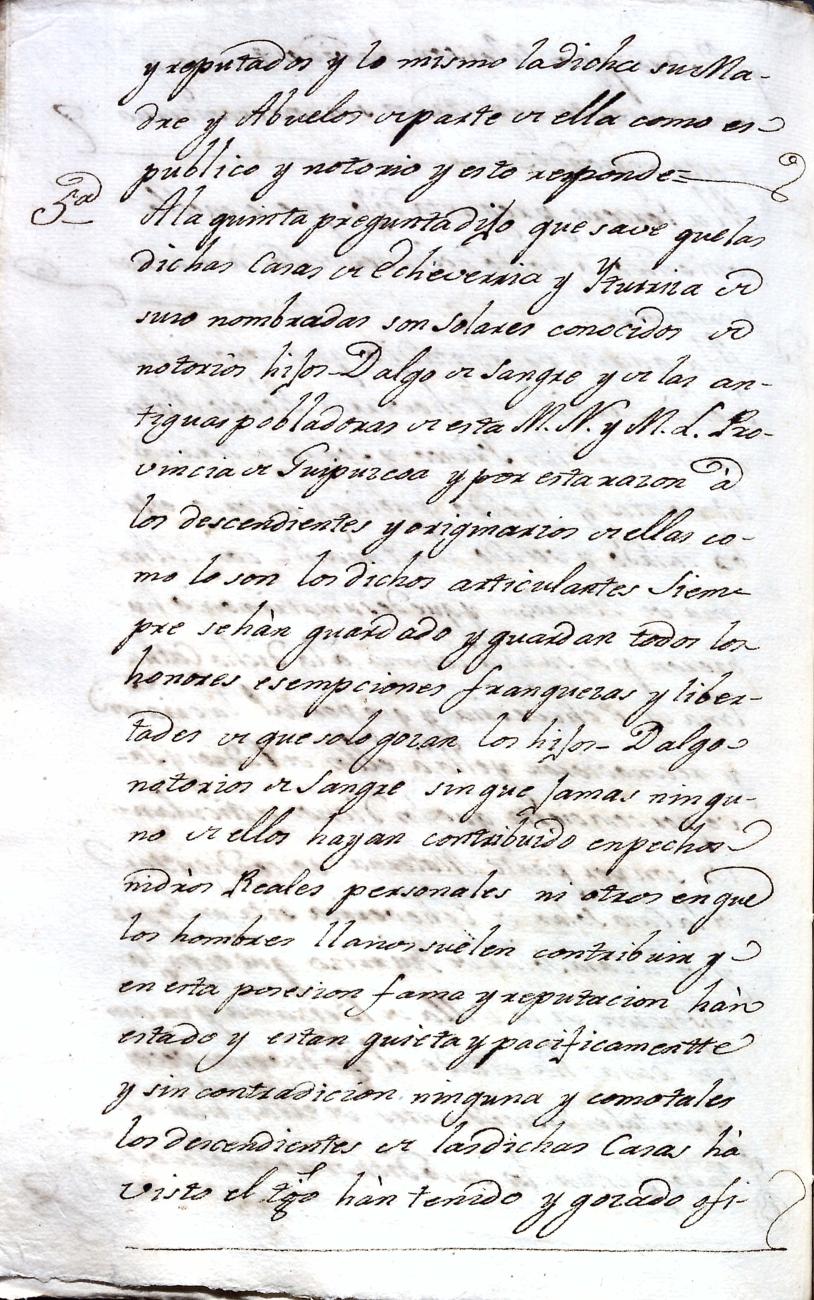 y reputados y lo mismo la dicha su Ma-
dre y Abuelos de parte de ella como es
publico y notorio y esto responde=
5ª
A la quinta pregunta dijo que save que las
dichas Casas de Echeverria y Yturria de
suso nombradas son solares conocidos de
notorios hijos-Dalgo de sangre y de las an-
tiguas pobladoras de esta M. N. y M. L. Pro-
vincia de Guipuzcoa y por esta razon à
los descendientes y originarios de ellas co-
mo lo son los dichos articulantes siem-
pre se hàn guardado y guardan todos los
honores esempciones franquezas y liber-
tades de que solo gozan los hijos-Dalgo
notorios de sangre sin que jamas ningu-
no de ellos hayan contribuido en pechos
ni dròs Reales personales ni otros en que
los hombres llanos suelen contribuir y
en esta posesion fama y reputacion hàn
estado y estan quieta y pacificamentte
y sin contradicion ninguna y como tales
los descendientes de las dichas Casas hà
visto el tgº hàn tenido y gozado ofi-